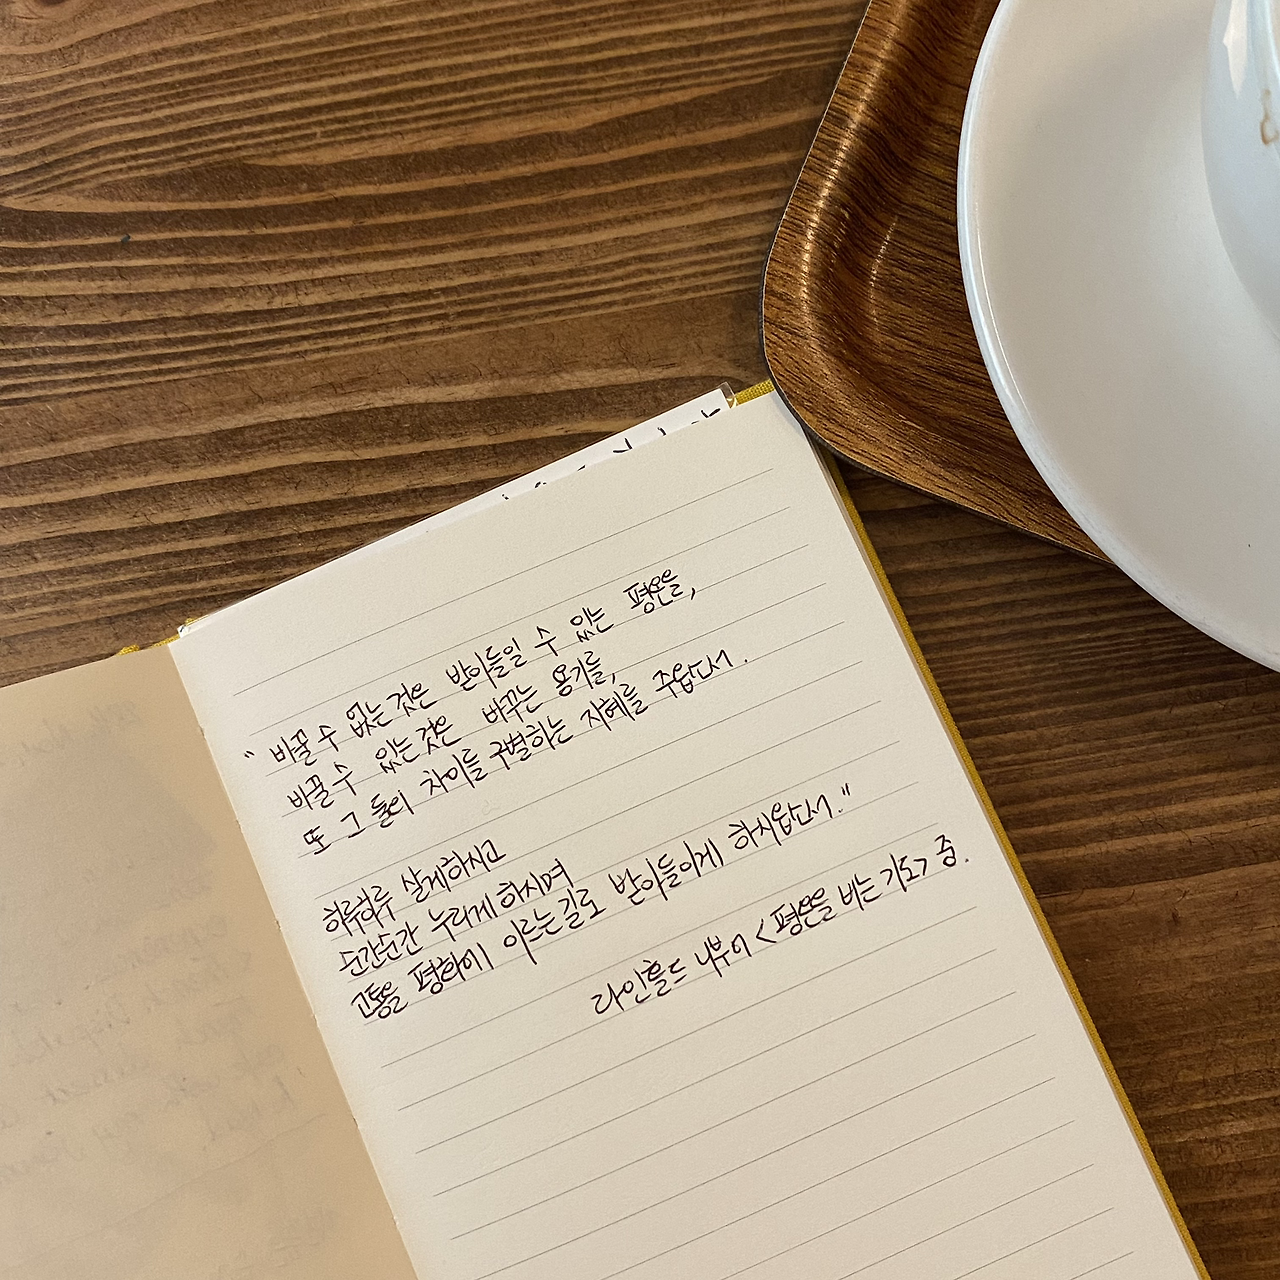 " 바꿀 수 없는 것은 받아들일 수 있는 평온을,
바꿀 수 있는 것은 바꾸는 용기를,
또 그 둘의 차이를 구별하는 지혜를 주옵소서.
하루하루 살게하시고
순간순간 누리게 하시며
고통을 평화에 이르는 길로 받아들이게 하시옵소서."
라인홀드 니부어 <평온을 비는 기도> 중.